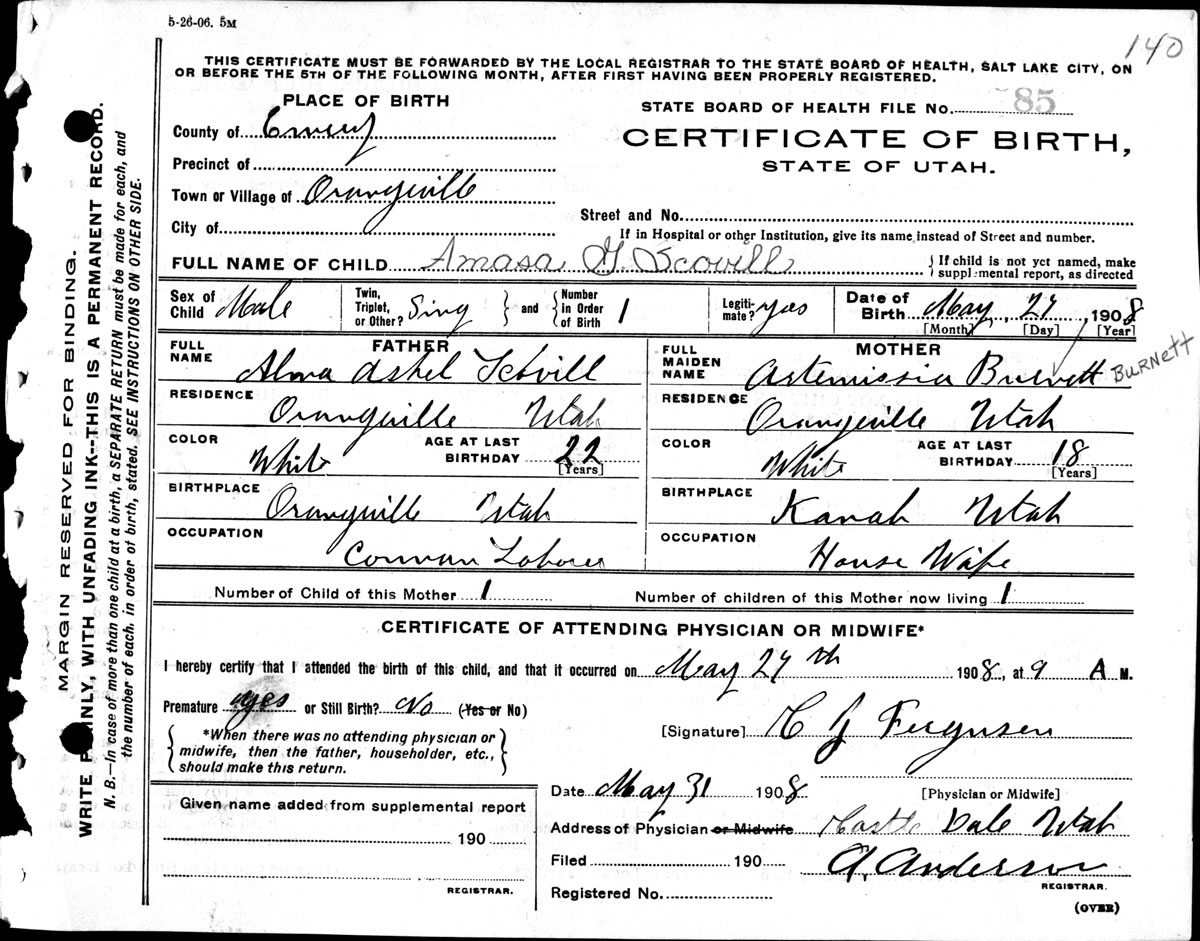 5-26-06. 5M
140
THIS CERTIFICATE MUST BE FORWARDED BY THE LOCAL REGISTRAR TO THE STATE BOARD OF HEALTH, SALT LAKE CITY, ON
OR BEFORE THE 5TH OF THE FOLLOWING MONTH, AFTER FIRST HAVING BEEN PROPERLY REGISTERED.
PLACE OF BIRTH
STATE BOARD OF HEALTH FILE No. 85
County of Emery
CERTIFICATE OF BIRTH,
Precinct of
STATE OF UTAH.
Town or Village of Orangeville
Street and No.
City of
If in Hospital or other Institution, give its name instead of Street and number.
FULL NAME OF CHILD Amasa G. Scovill
{If child is not yet named, make
supplemental report, as directed
Sex of Child Male
Twin, Triplet, or Other? Sing } and { Number in Order of Birth 1
Legitimate? yes
Date of Birth May, 27, 1908
[Month] [Day] [Year]
FATHER
FULL NAME Alma Ashel Scovill
RESIDENCE Orangville Utah
COLOR White AGE AT LAST BIRTHDAY 22
[Years]
BIRTHPLACE Orangville Utah
OCCUPATION Comman Laborer
MOTHER
FULL MAIDEN NAME Artemissia Burnett BURNETT
RESIDENCE Orangeville Utah
COLOR White AGE AT LAST BIRTHDAY 18
[Years]
BIRTHPLACE Kanab Utah
OCCUPATION House Wife
Number of Child of this Mother 1 Number of children of this Mother now living 1
CERTIFICATE OF ATTENDING PHYSICIAN OR MIDWIFE*
I hereby certify that I attended the birth of this child, and that it occurred on May 27th 1908, at 9 A M.
Premature yes or Still Birth? No (Yes or No)
*When there was no attending physician or
midwife, then the father, householder, etc.,
should make this return.
[Signature] C J Fergusen
Date May 31 1908
[Physician or Midwife]
Given name added from supplemental report
190
REGISTRAR.
Address of Physician or Midwife Castle Dale Utah
Filed 190
A. Anderson
REGISTRAR.
Registered No.
(OVER)
MARGIN RESERVED FOR BINDING.
WRITE PLAINLY, WITH UNFADING INK--THIS IS A PERMANENT RECORD.
N. B.—In case of more than one child at a birth, a SEPARATE RETURN must be made for each, and
the number of each, in order of birth, stated. SEE INSTRUCTIONS ON OTHER SIDE.